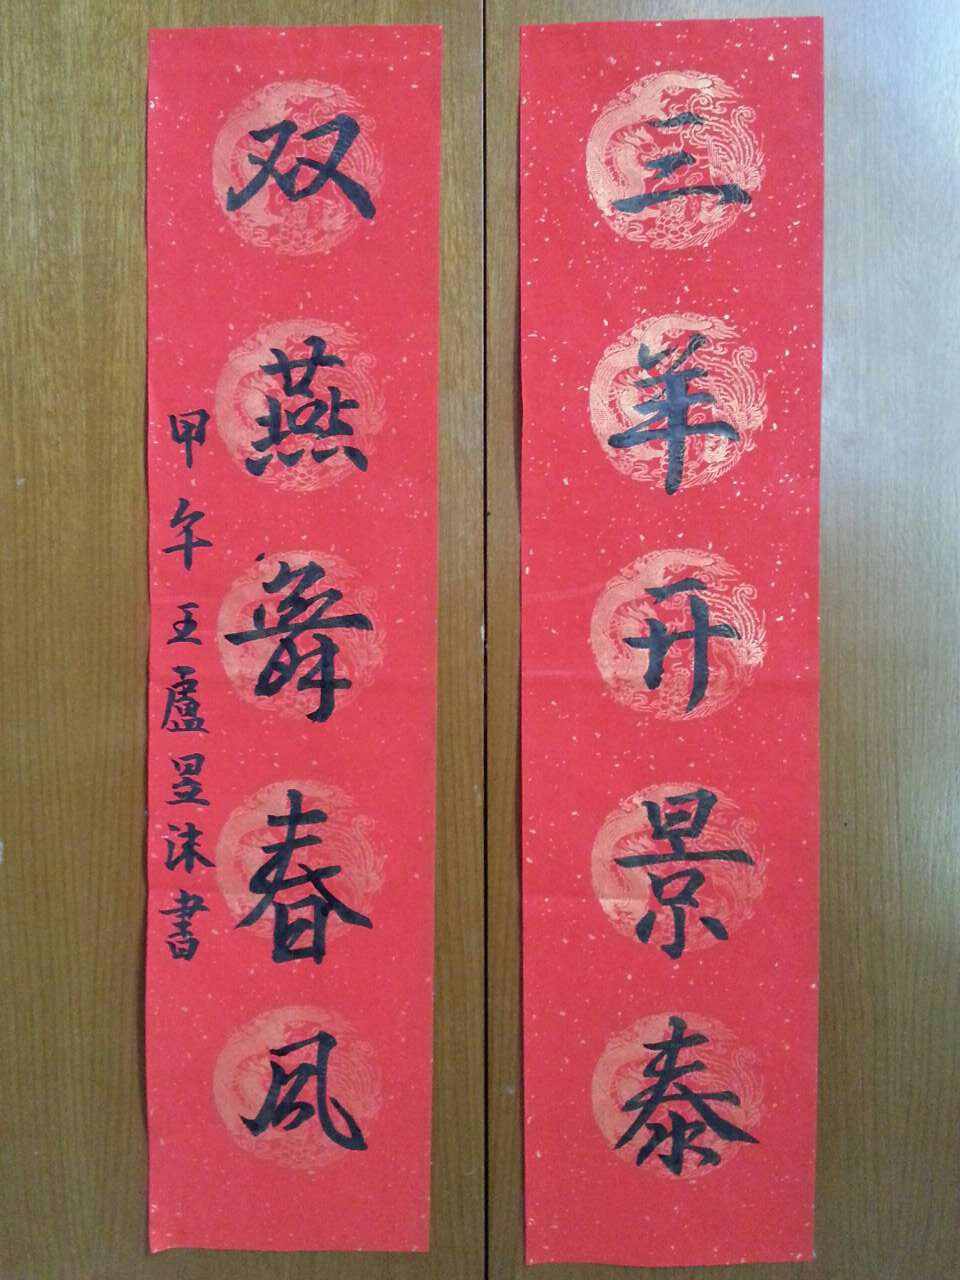 三羊开景泰
双燕舞春风
甲午王盧昱沐書